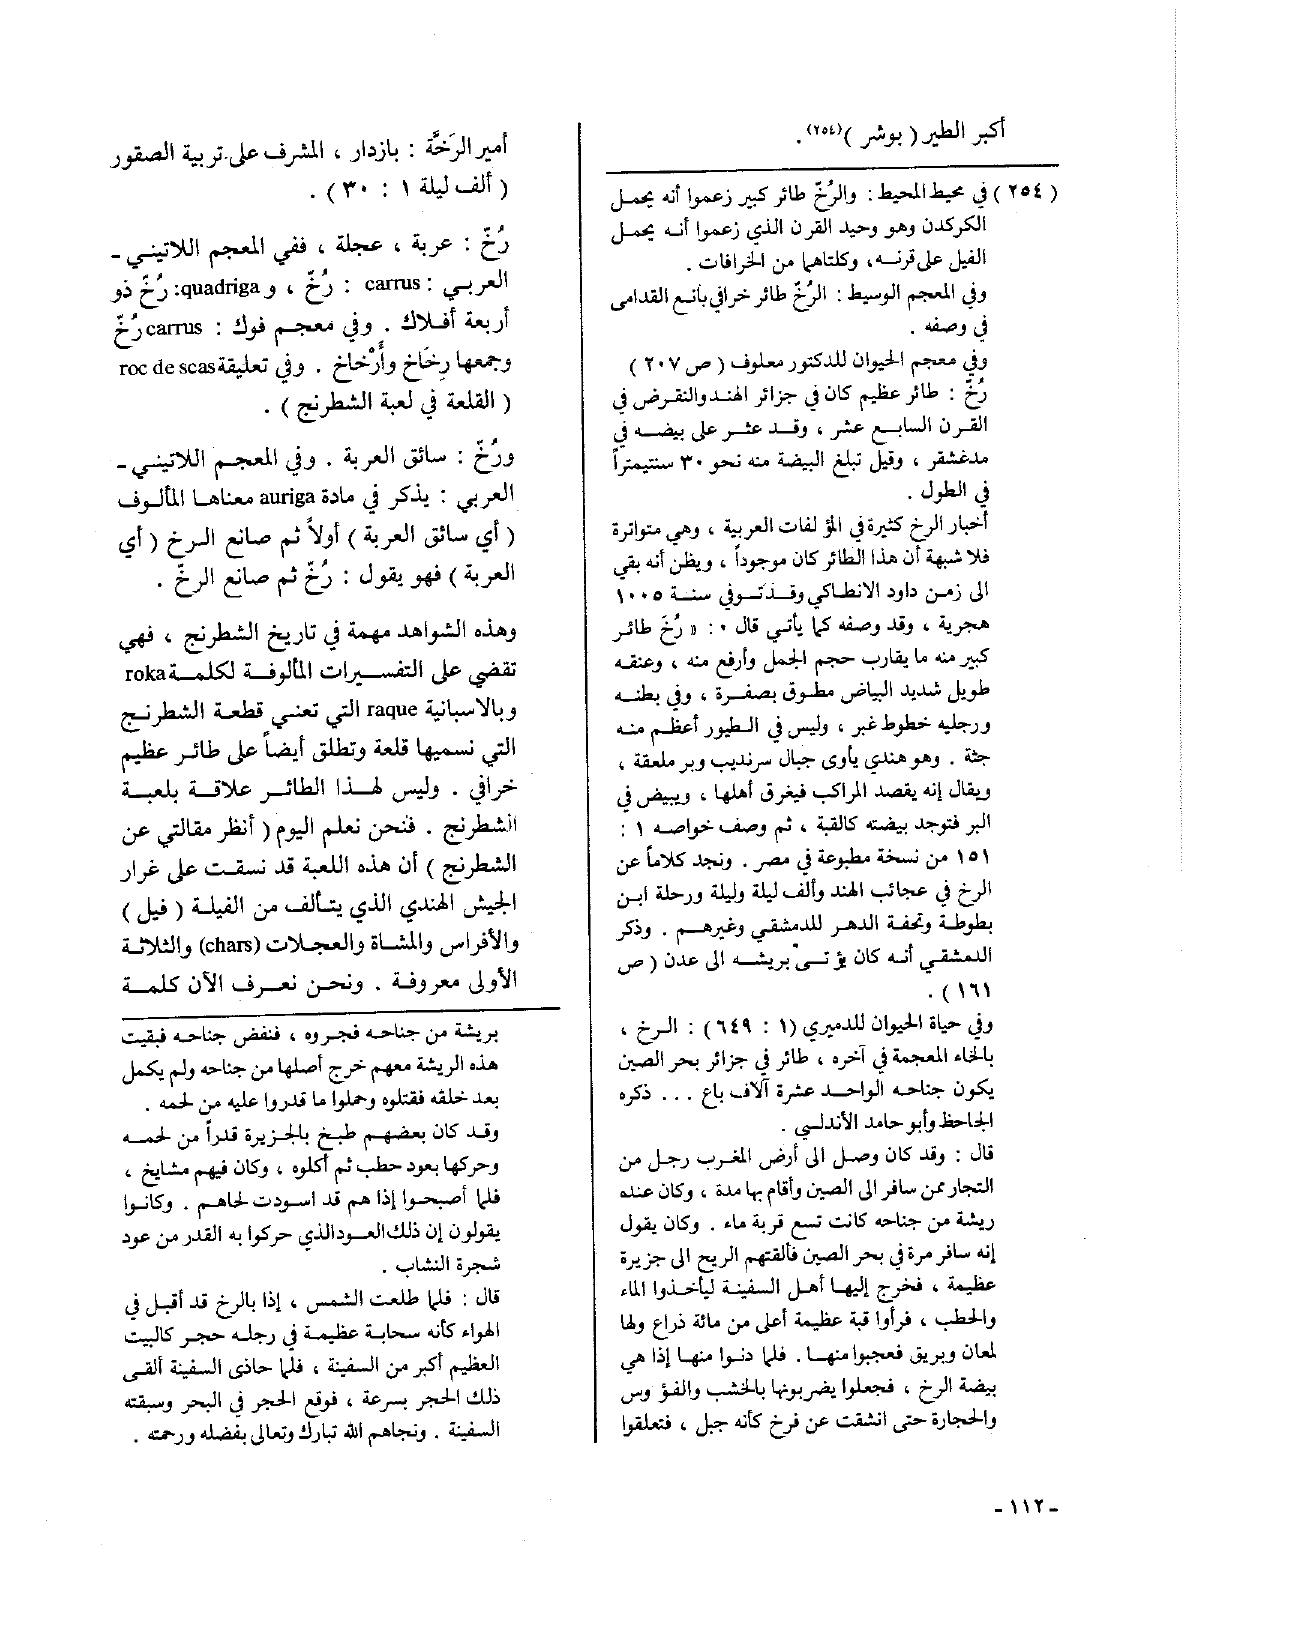 أكبر الطير ( بوشر )(٢٥٤) .
( ٢٥٤ ) في محيط المحيط : والرُخّ طائر كبير زعموا أنه يحمل
الكركدن وهو وحيد القرن الذي زعموا أنه يحمل
الفيل على قرنه ، وكلتاهما من الخرافات .
وفي المعجم الوسيط : الرُخّ طائر خرافي بالغ القدامى
في وصفه .
وفي معجم الحيوان للدكتور معلوف ( ص ٢٠٧ )
رُخّ : طائر عظيم كان في جزائر الهند وانقرض في
القرن السابع عشر ، وقد عثر على بيضه في
مدغشقر ، وقيل تبلغ البيضة منه نحو ٣٠ سنتيمتراً
في الطول .
أخبار الرخ كثيرة في المؤلفات العربية ، وهي متواترة
فلا شبهة أن هذا الطائر كان موجوداً ، ويظن أنه بقي
الى زمن داود الانطاكي وقد توفي سنة ١٠٠٥
هجرية ، وقد وصفه كما يأتي قال : « رُخّ طائر
كبير منه ما يقارب حجم الجمل وأرفع منه ، وعنقه
طويل شديد البياض مطوق بصفرة ، وفي بطنه
ورجليه خطوط غبر ، وليس في الطيور أعظم منه
جثة . وهو هندي يأوى جبال سرنديب وبر ملعقة ،
ويقال إنه يقصد المراكب فيغرق أهلها ، ويبيض في
البر فتوجد بيضته كالقبة ، ثم وصف خواصه ١ :
١٥١ من نسخة مطبوعة في مصر . ونجد كلاماً عن
الرخ في عجائب الهند وألف ليلة وليلة ورحلة ابن
بطوطة وتحفة الدهر للدمشقي وغيرهم . وذكر
الدمشقي أنه كان يؤتى بريشه الى عدن ( ص
١٦١ ) .
وفي حياة الحيوان للدميري ( ١ : ٦٤٩ ) : الرخ ،
بالخاء المعجمة في آخره ، طائر في جزائر بحر الصين
يكون جناحه الواحد عشرة آلاف باع ... ذكره
الجاحظ وأبو حامد الأندلسي .
قال : وقد كان وصل الى أرض المغرب رجل من
التجار ممن سافر الى الصين وأقام بها مدة ، وكان عنده
ريشة من جناحه كانت تسع قربة ماء . وكان يقول
إنه سافر مرة في بحر الصين فألقتهم الريح الى جزيرة
عظيمة ، فخرج إليها أهل السفينة ليأخذوا الماء
والحطب ، فرأوا قبة عظيمة أعلى من مائة ذراع ولها
لمعان وبريق فعجبوا منها . فلما دنوا منها إذا هي
بيضة الرخ ، فجعلوا يضربونها بالخشب والفؤوس
والحجارة حتى انشقت عن فرخ كأنه جبل ، فتعلقوا
أمير الرَخَّة : بازدار ، المشرف على تربية الصقور
( ألف ليلة ١ : ٣٠ ) .
رُخّ : عربة ، عجلة ، ففي المعجم اللاتيني -
العربي : carrus : رُخّ ، و quadriga: رُخّ ذو
أربعة أفلاك . وفي معجم فوك : carrus رُخّ
وجمعها رِخَاخ وأَرْخاخ . وفي تعليقة roc de scas
( القلعة في لعبة الشطرنج ) .
ورُخّ : سائق العربة . وفي المعجم اللاتيني -
العربي : يذكر في مادة auriga معناها المألوف
( أي سائق العربة ) أولاً ثم صانع الرخ ( أي
العربة ) فهو يقول : رُخّ ثم صانع الرخّ .
وهذه الشواهد مهمة في تاريخ الشطرنج ، فهي
تقضي على التفسيرات المألوفة لكلمة roka
وبالاسبانية raque التي تعني قطعة الشطرنج
التي نسميها قلعة وتطلق أيضاً على طائر عظيم
خرافي . وليس لهذا الطائر علاقة بلعبة
الشطرنج . فنحن نعلم اليوم ( أنظر مقالتي عن
الشطرنج ) أن هذه اللعبة قد نسقت على غرار
الجيش الهندي الذي يتألف من الفيلة ( فيل )
والأفراس والمشاة والعجلات (chars) والثلاثة
الأولى معروفة . ونحن نعرف الآن كلمة
بريشة من جناحه فجروه ، فنفض جناحه فبقيت
هذه الريشة معهم خرج أصلها من جناحه ولم يكمل
بعد خلقه فقتلوه وحملوا ما قدروا عليه من لحمه .
وقد كان بعضهم طبخ بالجزيرة قدراً من لحمه
وحركها بعود حطب ثم أكلوه ، وكان فيهم مشايخ ،
فلما أصبحوا إذا هم قد اسودت لحاهم . وكانوا
يقولون إن ذلك العود الذي حركوا به القدر من عود
شجرة النشاب .
قال : فلما طلعت الشمس ، إذا بالرخ قد أقبل في
الهواء كأنه سحابة عظيمة في رجله حجر كالبيت
العظيم أكبر من السفينة ، فلما حاذى السفينة ألقى
ذلك الحجر بسرعة ، فوقع الحجر في البحر وسبقته
السفينة . ونجاهم الله تبارك وتعالى بفضله ورحمته .
- ١١٢ -